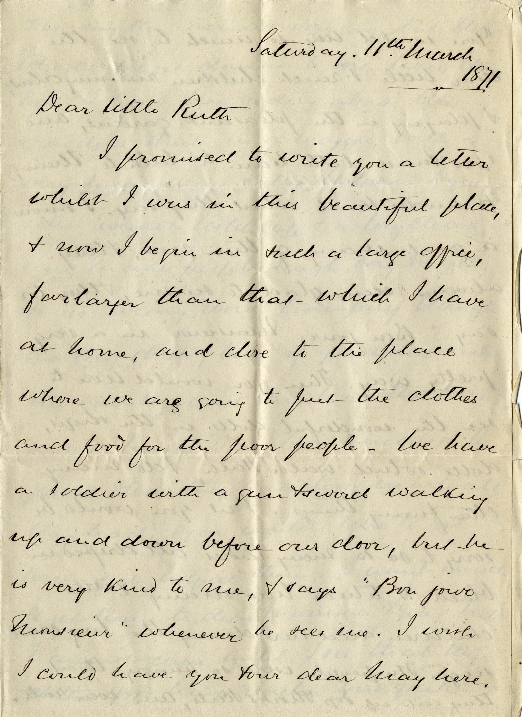 Saturday. 11th March
1871
Dear little Ruth
I promised to write you a letter
whilst I was in this beautiful place,
& now I begin in such a large office,
far larger than that which I have
at home, and close to the place
where we are going to put the clothes
and food for the poor people - We have
a soldier with a gun & sword walking
up and down before our door, but he
is very kind to me, & says "Bon jour
Monsieur" whenever he sees me. I wish
I could have you & our dear May here.